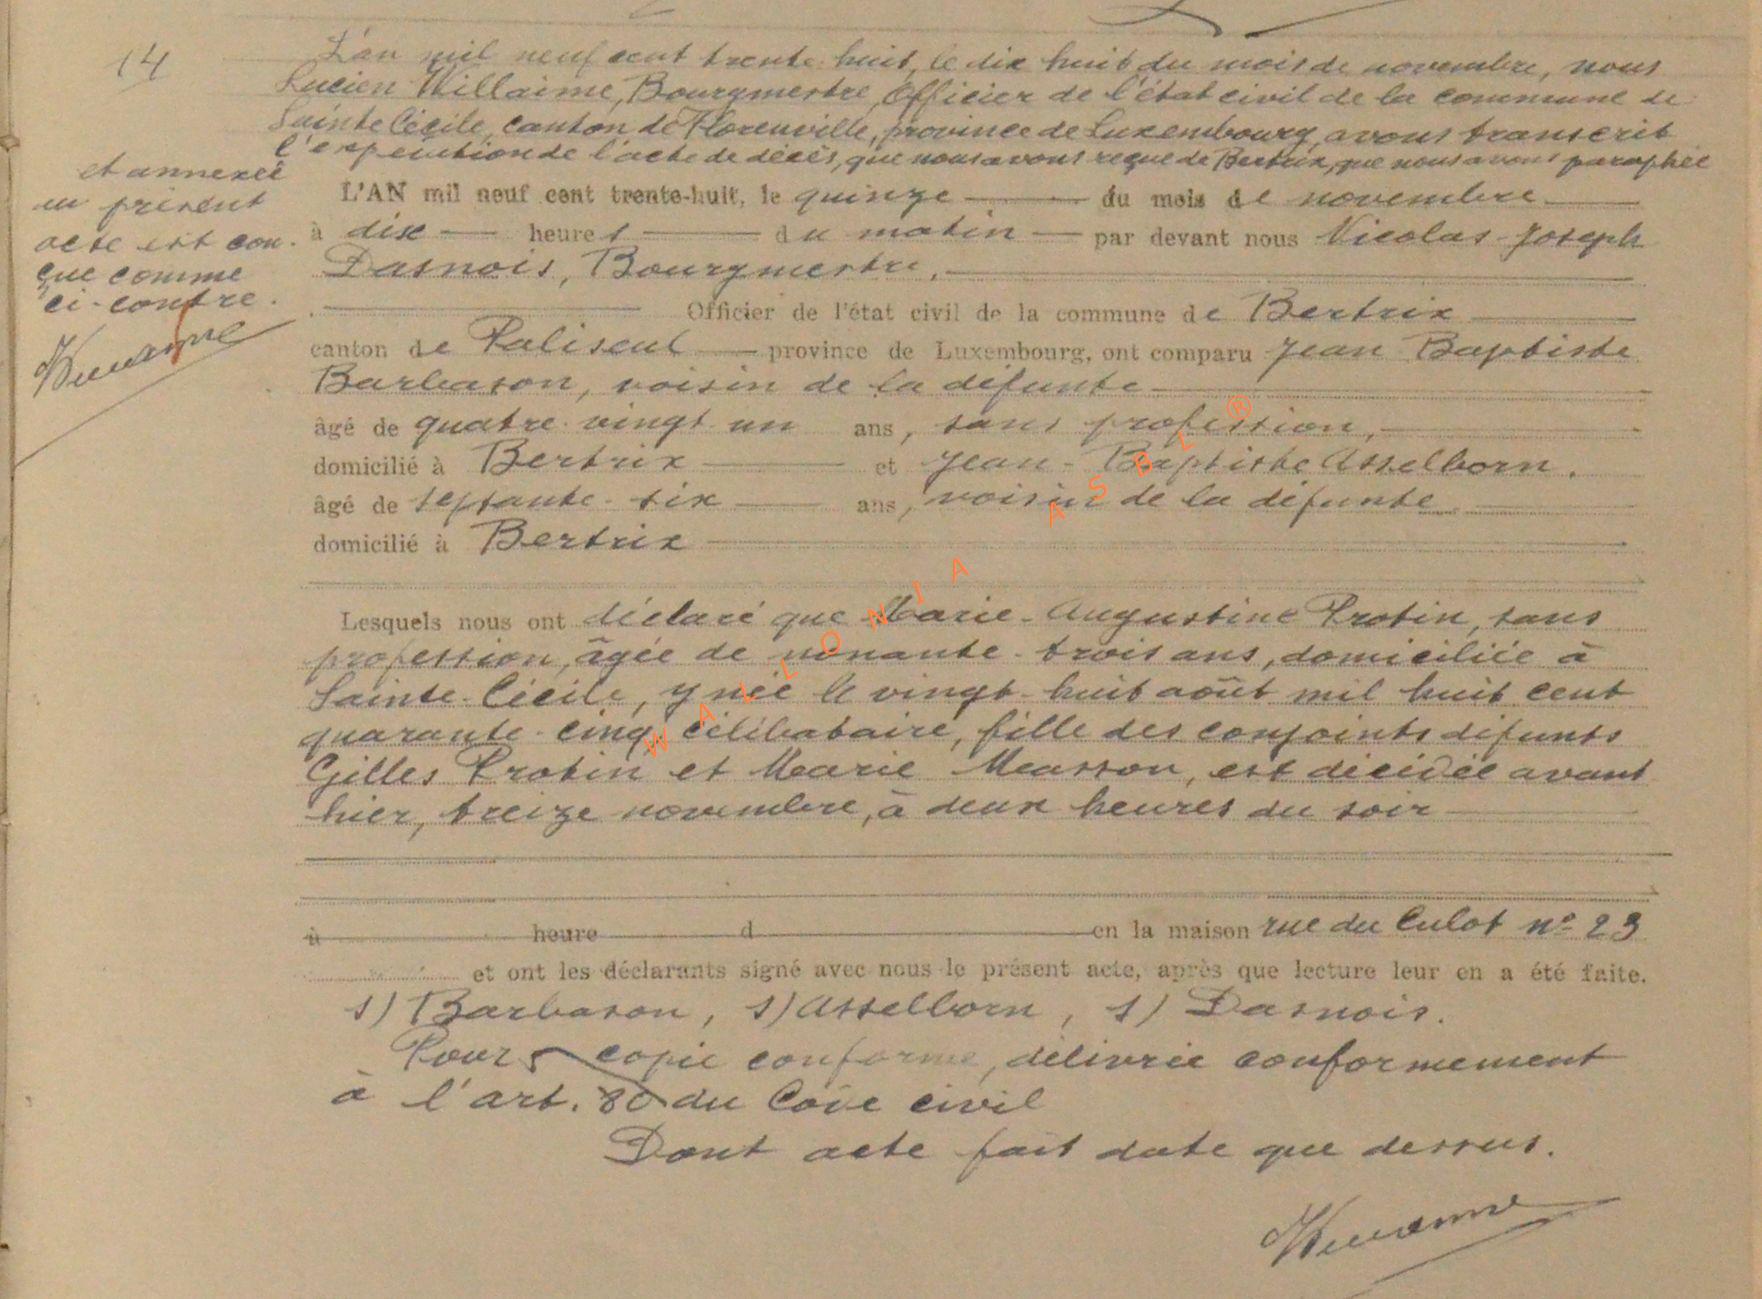 14
L'an mil neuf cent trente huit, le dix huit du mois de novembre, nous
Lucien Willaime, Bourgmestre, Officier de l'état civil de la commune de
Sainte Cécile, canton de Florenville, province de Luxembourg, avons transcrit
l'expédition de l'acte de décès, que nous avons reçue de Bertrix, que nous avons paraphée
et annexée
au présent
acte est con-
çue comme
ci-contre.
L'AN mil neuf cent trente-huit, le quinze du mois de novembre
à dix heures du matin par devant nous Nicolas-Joseph
Dasnois, Bourgmestre,
Officier de l'état civil de la commune de Bertrix
canton de Paliseul province de Luxembourg, ont comparu Jean Baptiste
Barbason, voisin de la défunte
âgé de quatre-vingt un ans, sans profession,
domicilié à Bertrix et Jean-Baptiste Asselborn.
âgé de septante-six ans, voisin de la défunte
domicilié à Bertrix
Lesquels nous ont déclaré que Marie-Augustine Protin, sans
profession, âgée de nonante-trois ans, domiciliée à
Sainte-Cécile, y née le vingt-huit août mil huit cent
quarante-cinq célibataire, fille des conjoints défunts
Gilles Protin et Marie Masson, est décédée avant
hier, treize novembre, à deux heures du soir
à heure d en la maison rue du Culot n° 23
et ont les déclarants signé avec nous le présent acte, après que lecture leur en a été faite.
s) Barbason, s) Asselborn, s) Dasnois.
Pour copie conforme, délivrée conformement
à l'art. 80 du Code civil
Dont acte fait date que dessus.
WALLONIA ASBL ®